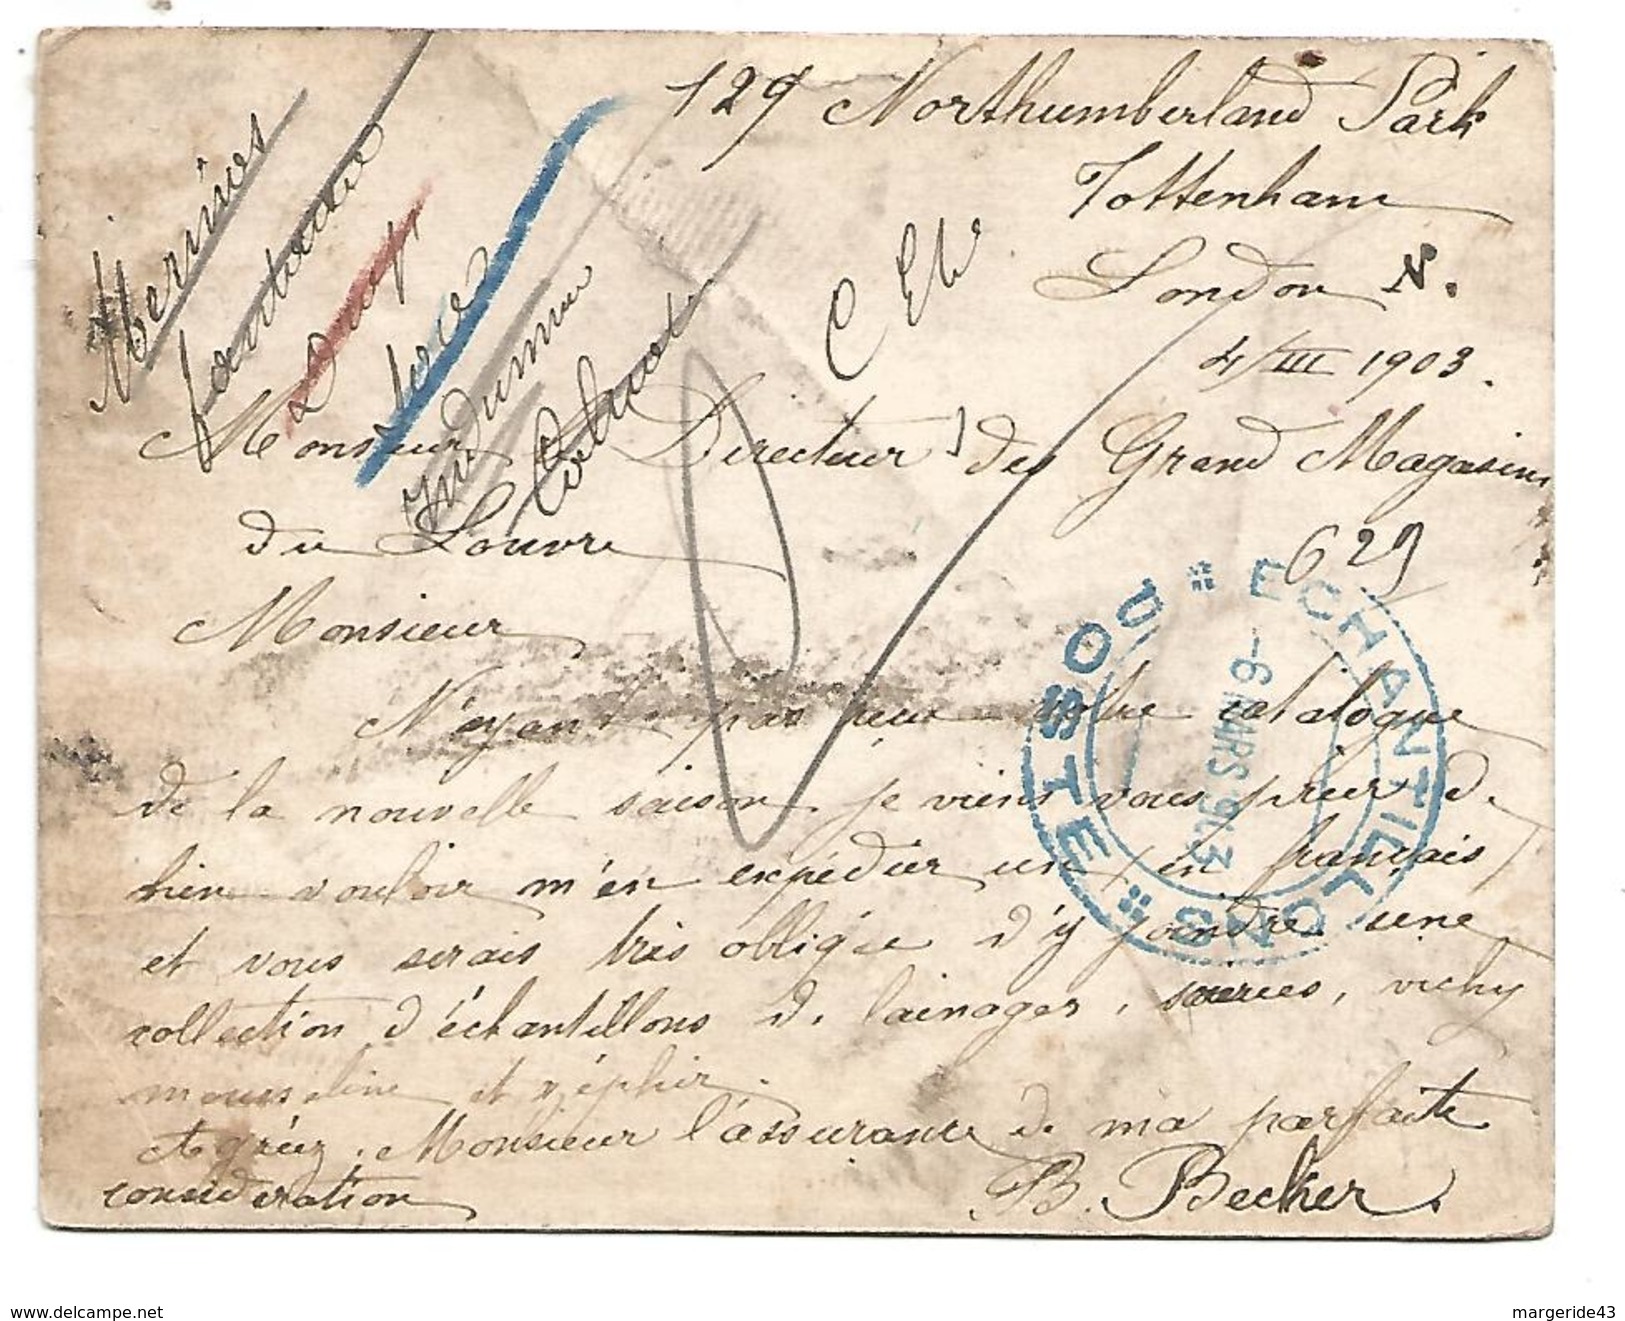 129 Northumberland Park
Tottenham
London N.
4/III 1903.
Mérinos
fantaisie
Drap
Soie
C Ele
Monsieur le Directeur des Grand Magasins
du Louvre
629
Monsieur
N'ayant pas reçu votre catalogue
de la nouvelle saison je viens vous prier de
bien vouloir m'en expédier un en français
et vous serais très obligée d'y joindre une
collection d'échantillons de lainages, soieries, vichy
mousseline et zéphir.
Agréez, Monsieur l'assurance de ma parfaite
consideration
B. Becker.
ECHANTILLONS
-6 MARS 1903
POSTE
www.delcampe.net
margeride43